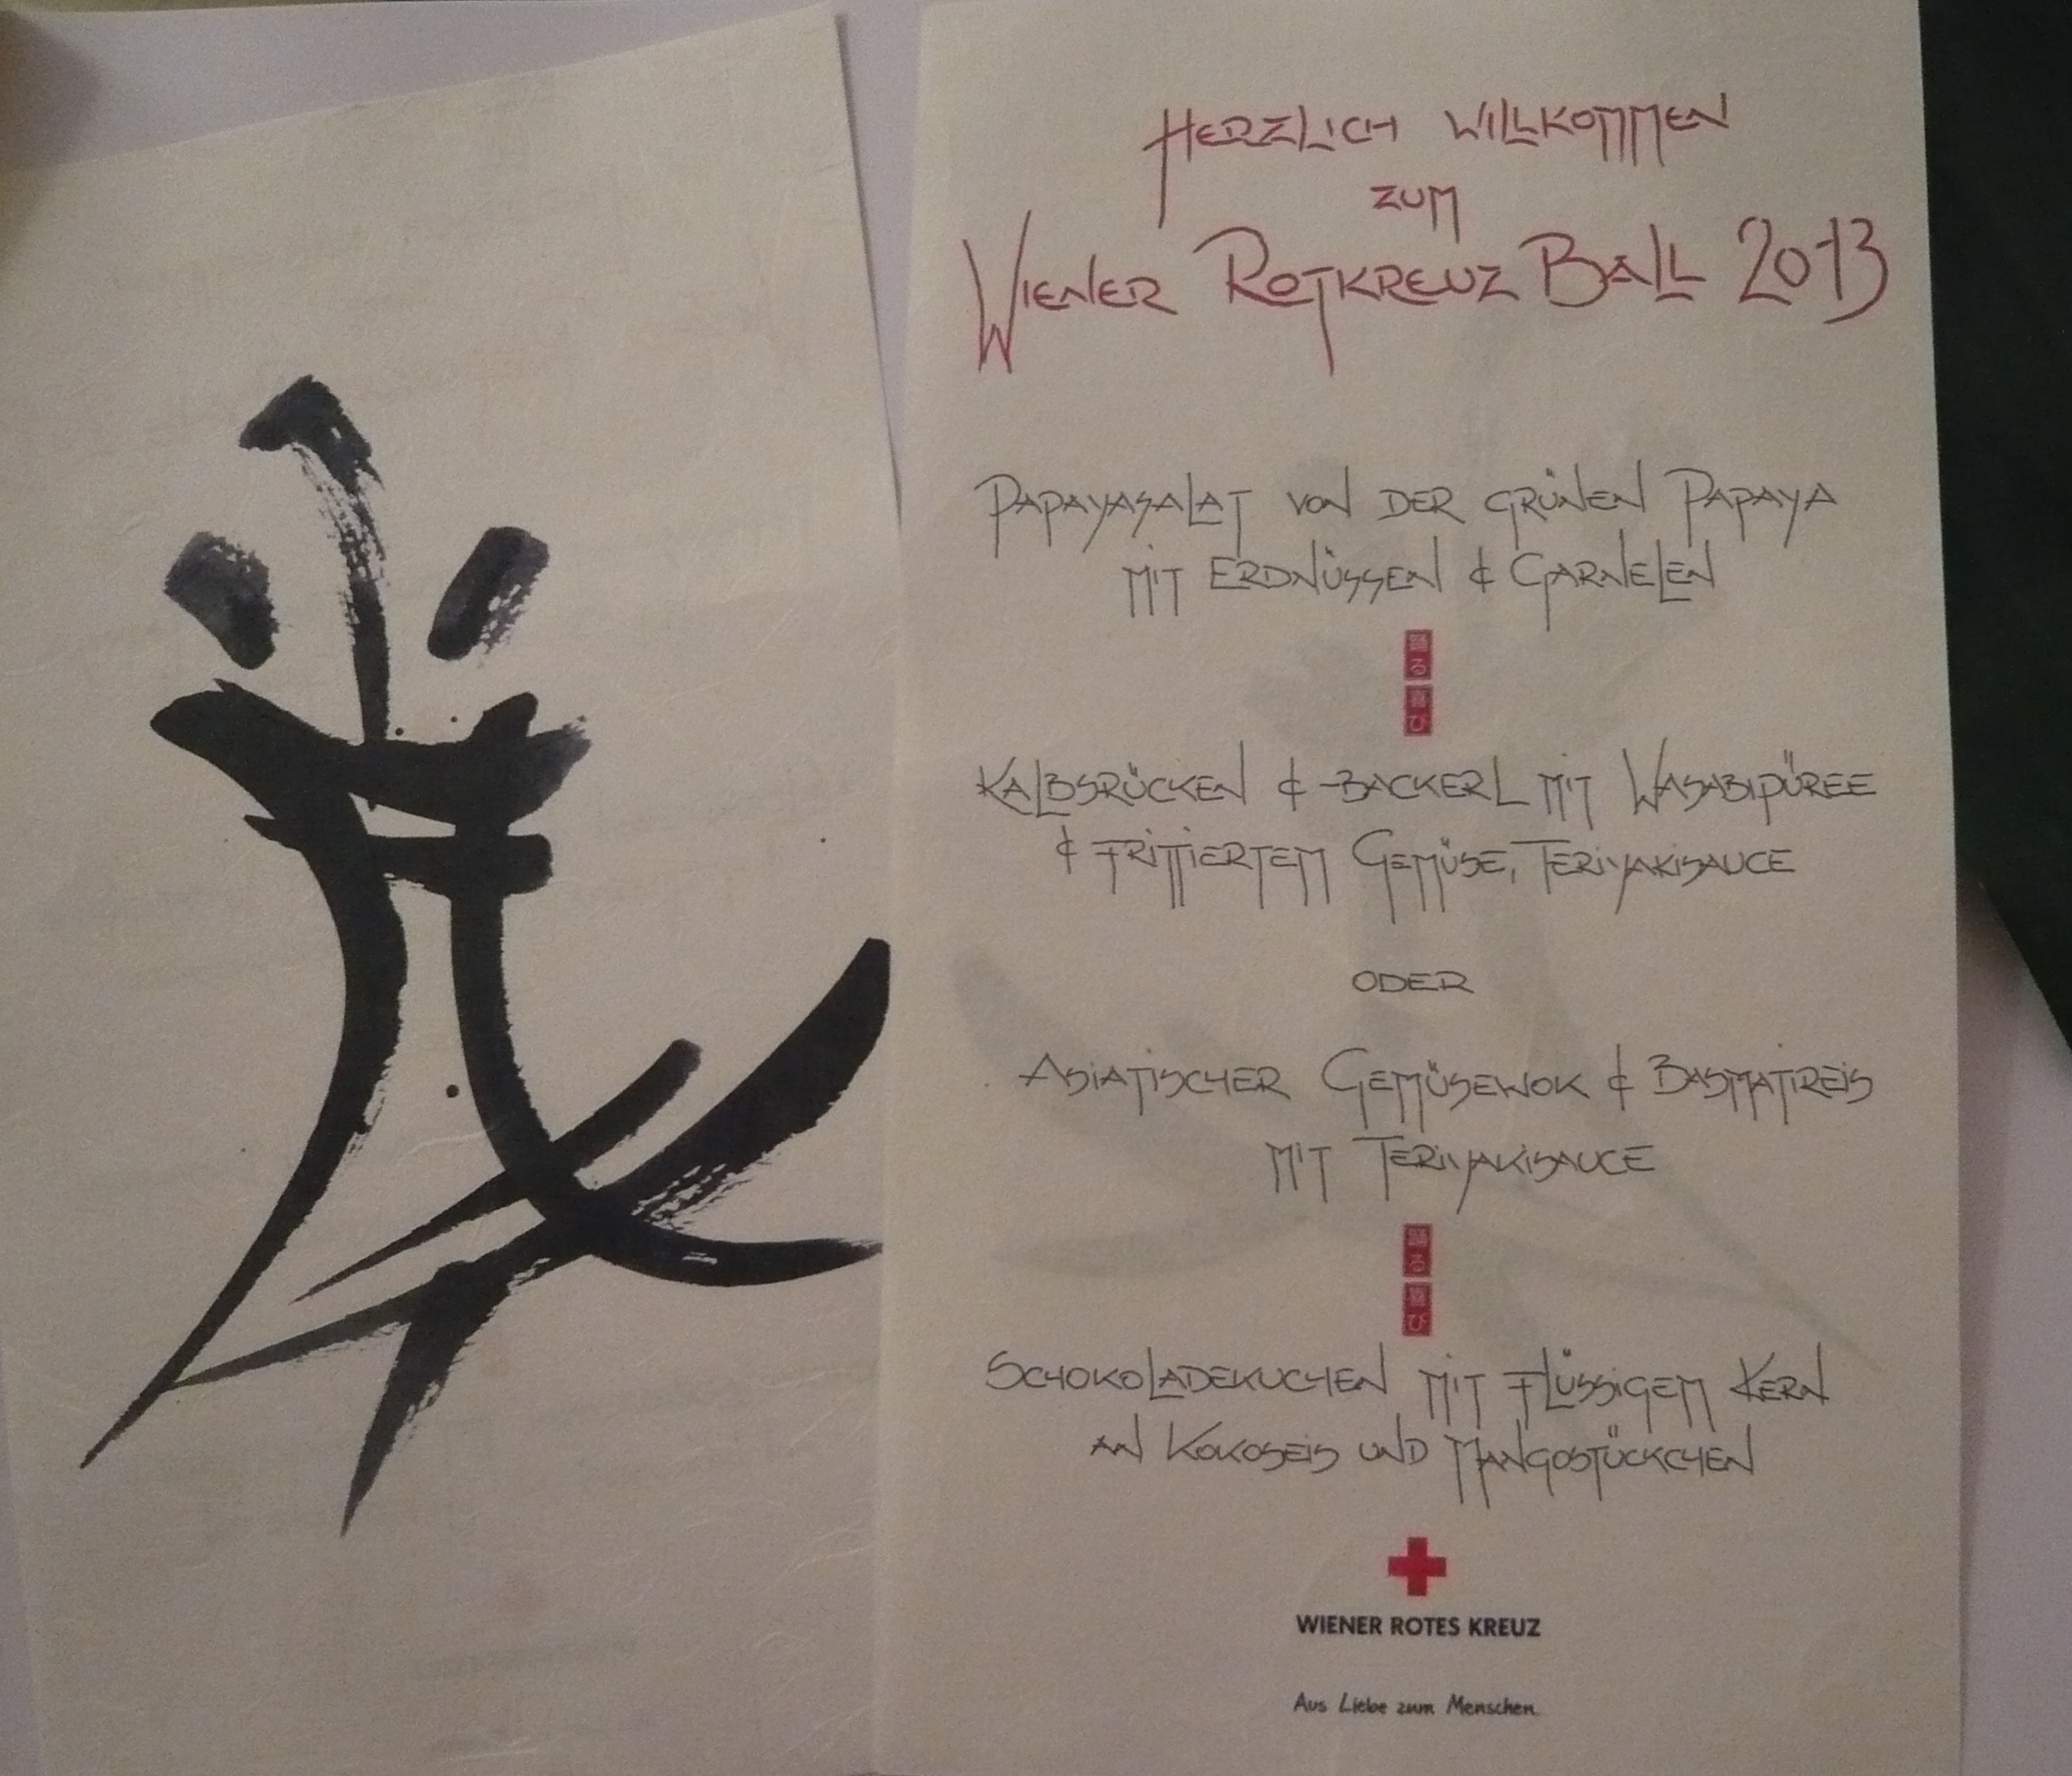 HERZLICH WILLKOMMEN
ZUM
WIENER ROTKREUZ BALL 2013
PAPAYASALAT VON DER GRÜNEN PAPAYA
MIT ERDNÜSSEN & GARNELEN
踊る
喜び
KALBSRÜCKEN & -BACKERL MIT WASABIPÜREE
& FRITTIERTEM GEMÜSE, TERIYAKISAUCE
ODER
ASIATISCHER GEMÜSEWOK & BASMATIREIS
MIT TERIYAKISAUCE
踊る
喜び
SCHOKOLADEKUCHEN MIT FLÜSSIGEM KERN
AN KOKOSEIS UND MANGOSTÜCKCHEN
WIENER ROTES KREUZ
Aus Liebe zum Menschen.